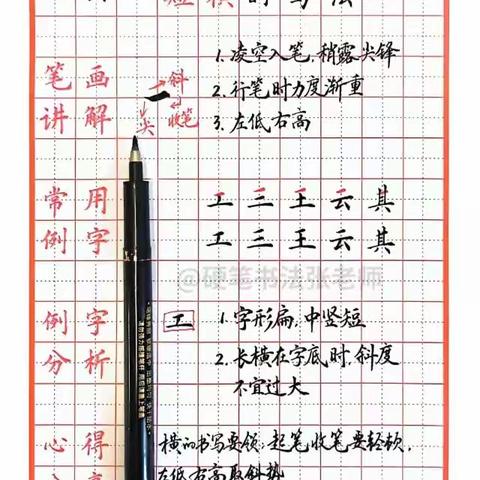 短横的写法
1. 凌空入笔，稍露尖锋
笔画
2. 行笔时力度渐重
讲解
3. 左低右高
斜
收笔
尖
常用
工 三 王 云 其
例字
工 三 王 云 其
@硬笔书法张老师
例字
工
1. 字形扁，中竖短
分析
2. 长横在字底时，斜度
不宜过大
心得
横的书写要领：起笔收笔要轻软，
左低右高取斜势